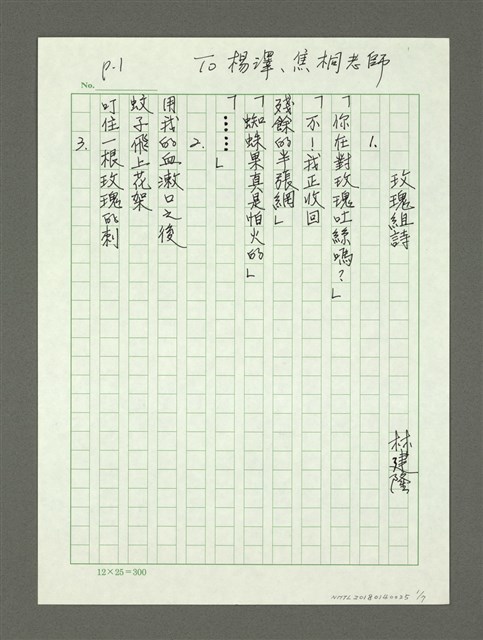 P.1
To 楊澤、焦桐老師
No.
玫瑰組詩
林建隆
1.
「你在對玫瑰吐絲嗎？」
「不！我正收回
殘餘的半張網」
「蜘蛛果真是怕火的」
「……」
2.
用我的血漱口之後
蚊子飛上花架
叮住一根玫瑰的刺
3.
12×25=300
NMTL20180140025 1/7